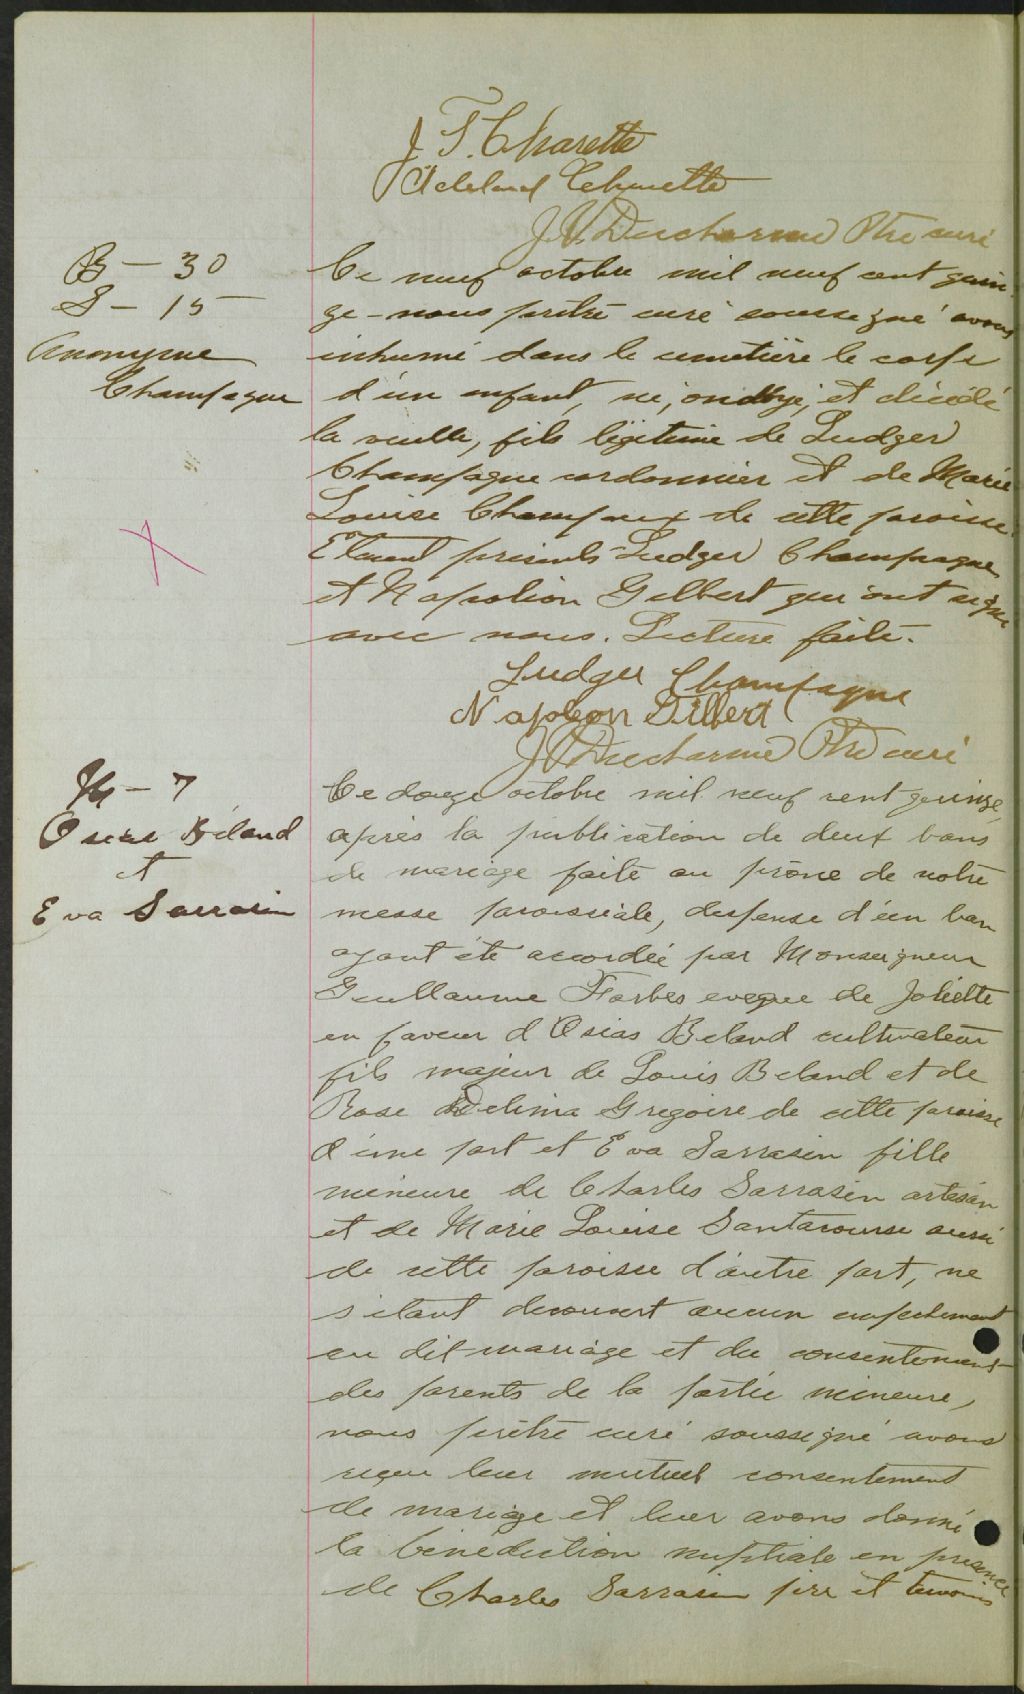 J. T. Charette
Adelard Charette
J. V. Ducharme Ptre curé
B – 30
S – 15
Anonyme
Champagne
Ce neuf octobre mil neuf cent quin-
ze – nous prêtre curé soussigné avons
inhumé dans le cimetière le corps
d'un enfant, né, ondoyé, et décédé
la veille, fils légitime de Ludger
Champagne cordonnier et de Marie
Louise Champoux de cette paroisse.
Etaient présents Ludger Champagne
et Napoléon Gilbert qui ont signé
avec nous. Lecture faite.
Ludger Champagne
Napoleon Gilbert
J. V. Ducharme Ptre curé
M – 7
Osias Béland
et
Eva Sarrasin
Ce douze octobre mil neuf cent quinze,
après la publication de deux bans
de mariage faite au prône de notre
messe paroissiale, dispense d'un ban
ayant été accordée par Monseigneur
Guillaume Forbes evêque de Joliette
en faveur d'Osias Beland cultivateur
fils majeur de Louis Beland et de
Rose Delima Gregoire de cette paroisse
d'une part et Eva Sarrasin fille
mineure de Charles Sarrasin artisan
et de Marie Louise aussi
de cette paroisse d'autre part, ne
s'étant découvert aucun empêchement
au dit mariage et du consentement
des parents de la partie mineure,
nous prêtre curé soussigné avons
reçu leur mutuel consentement
de mariage et leur avons donné
la bénédiction nuptiale en présence
de Charles Sarrasin père et temoins